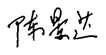 陈景达